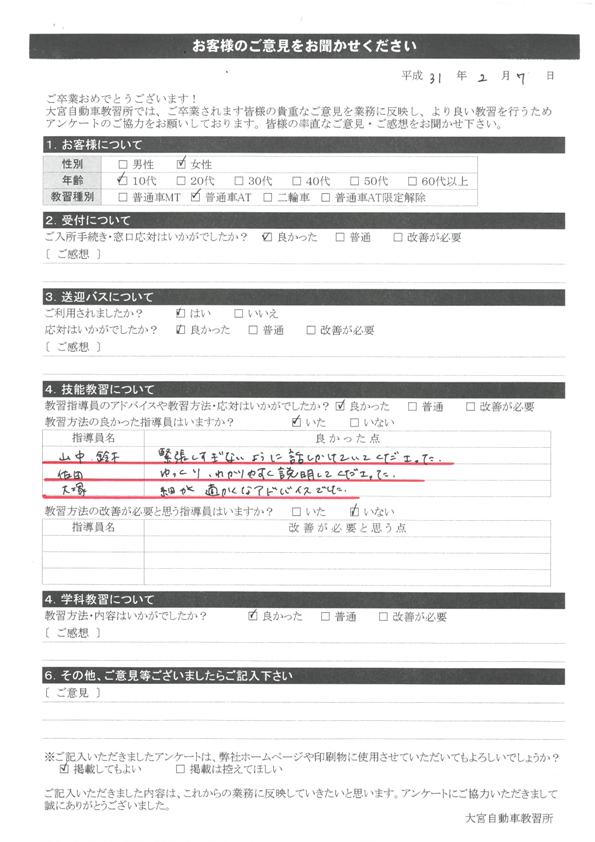 お客様のご意見をお聞かせください
平成 31 年 2 月 7 日
ご卒業おめでとうございます！
大宮自動車教習所では、ご卒業されます皆様の貴重なご意見を業務に反映し、より良い教習を行うため
アンケートのご協力をお願いしております。皆様の率直なご意見・ご感想をお聞かせ下さい。
1. お客様について
性別 □ 男性 ☑ 女性
年齢 ☑ 10代 □ 20代 □ 30代 □ 40代 □ 50代 □ 60代以上
教習種別 □ 普通車MT ☑ 普通車AT □ 二輪車 □ 普通車AT限定解除
2. 受付について
ご入所手続き・窓口応対はいかがでしたか？ ☑ 良かった □ 普通 □ 改善が必要
［ ご感想 ］
3. 送迎バスについて
ご利用されましたか？ ☑ はい □ いいえ
応対はいかがでしたか？ ☑ 良かった □ 普通 □ 改善が必要
［ ご感想 ］
4. 技能教習について
教習指導員のアドバイスや教習方法・応対はいかがでしたか？ ☑ 良かった □ 普通 □ 改善が必要
教習方法の良かった指導員はいますか？ ☑ いた □ いない
指導員名 良かった点
山中 鈴木 緊張しすぎないように話しかけていてくださった.
佐田 ゆっくり、わかりやすく説明してくださった.
大塚 細か アドバイスでした.
教習方法の改善が必要と思う指導員はいますか？ □ いた ☑ いない
指導員名 改善が必要と思う点
4. 学科教習について
教習方法・内容はいかがでしたか？ ☑ 良かった □ 普通 □ 改善が必要
［ ご感想 ］
6. その他、ご意見等ございましたらご記入下さい
［ ご意見 ］
※ご記入いただきましたアンケートは、弊社ホームページや印刷物に使用させていただいてもよろしいでしょうか？
☑ 掲載してもよい □ 掲載は控えてほしい
ご記入いただきました内容は、これからの業務に反映していきたいと思います。アンケートにご協力いただきまして
誠にありがとうございました。
大宮自動車教習所